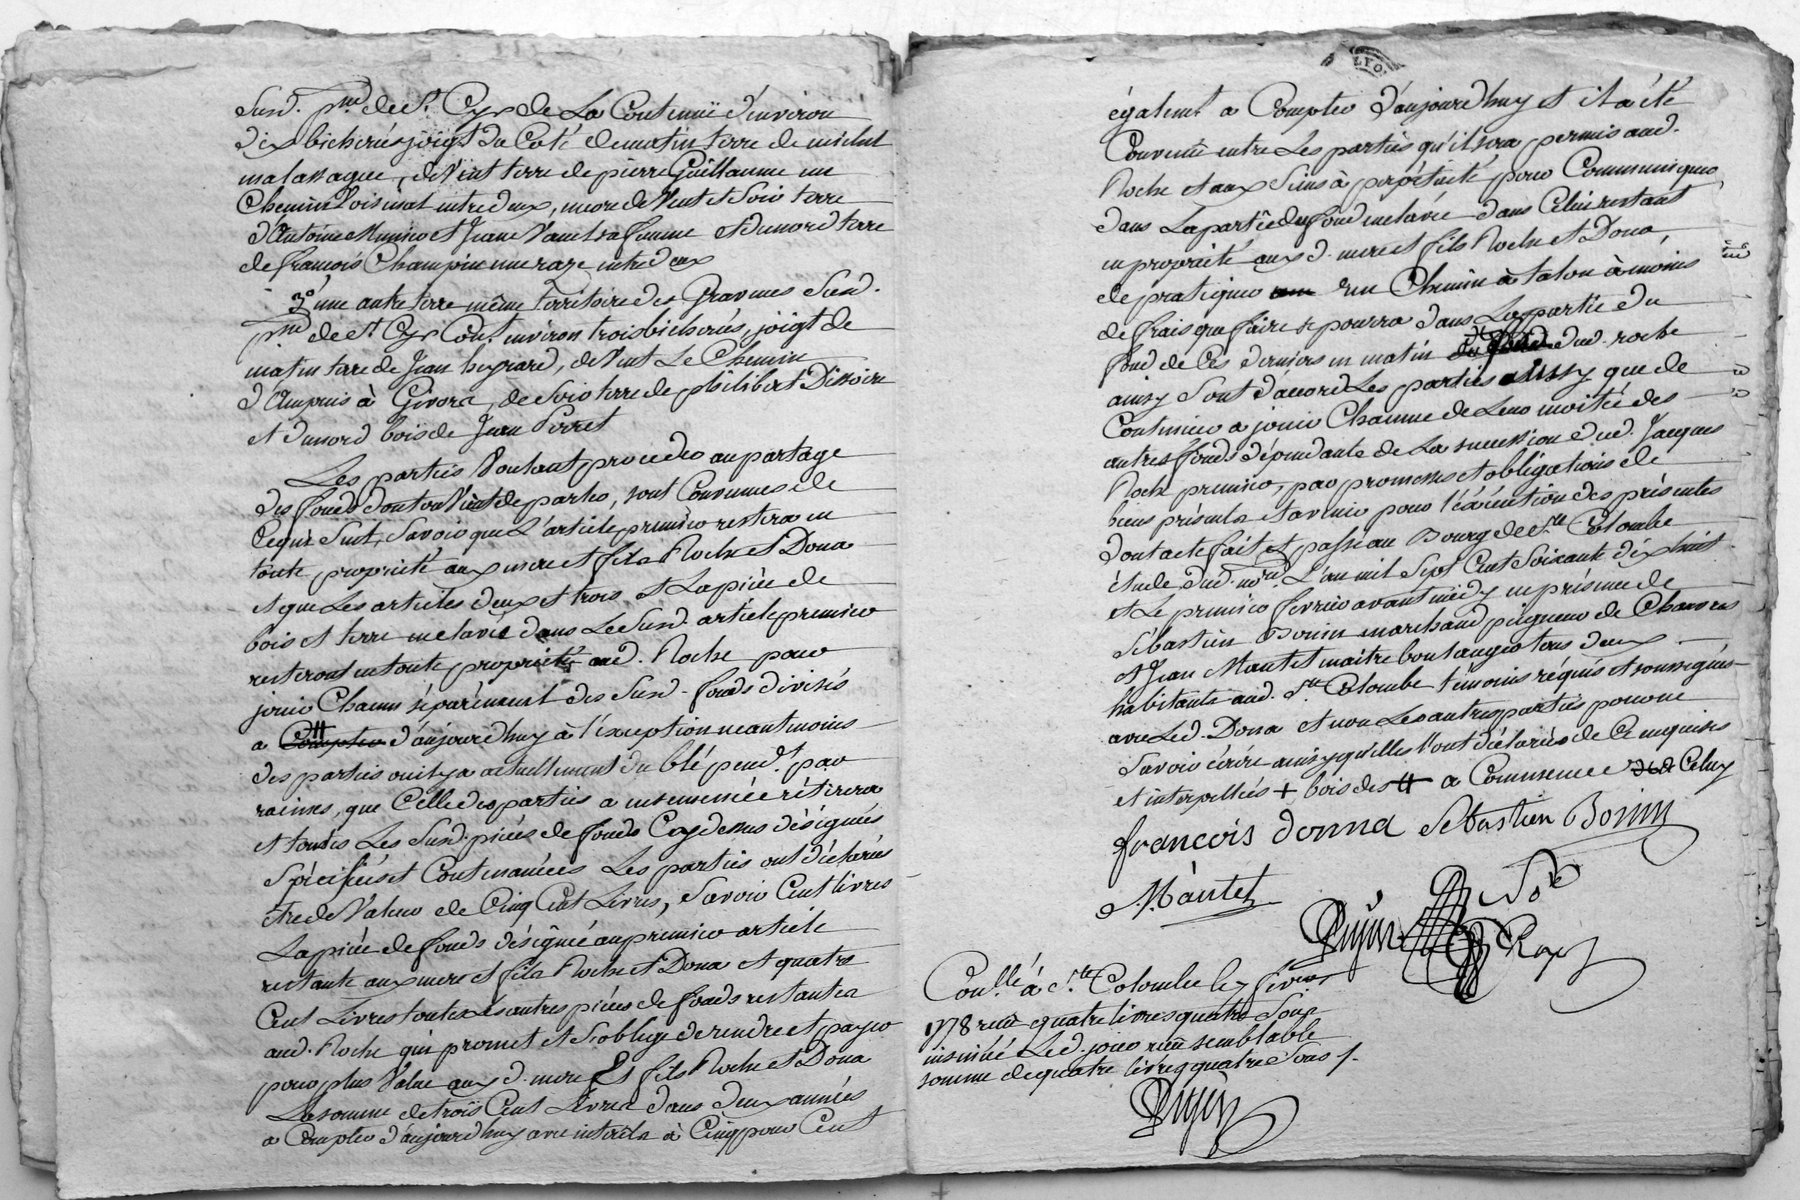 Susd. p.sse de St. Cyr de La Contenüe d'environ
dix bicherées joigt du Coté de matin terre de michel
malassagne, de Vent terre de pierre Guillaume un
Chemin Voisinat entre deux, encore de Vent et Soir terre
d'Antoine Munier et Jeane Vanel sa femme et du nord terre
de francois Champin une raze entre deux
3.° une autre terre même territoire des Gravines Susd.
p.sse de St. Cyr Cont. environ trois bicherées, joigt de
matin terre de Jean , de Vent Le Chemin
d'Ampuis à Givors, de Soir terre de philibert Dissoire
et du nord bois de Jean Perret
Les parties Voulant proceder au partage
des fonds dont on Vient de parler, sont Convenues de
Ce qui Suit, Savoir que L'article premier restera en
toute propriété aux mere et fils Roche et Dona
et que Les articles deux et trois, et La piéce de
bois et terre enclavée dans Le Susd. article premier
resteront en toute propriété aud. Roche pour
jouir Chacun séparément des Susd. fonds divisés
a Compter d'aujourd'huy à l'éxception neantmoins
des parties ou il y a actuellement du blé pend.t par
racines, que Celle des parties a ensemencée rétirera
et toutes Les Susd. piéces de fonds Cy dessus désignées
Spécifiées et Contenancées Les parties ont déclarées
être de Valeur de Cinq Cent Livres, Savoir Cent livres
La piéce de fonds désignée au premier article
restante aux mere et fils Roche et Dona et quatre
Cent Livres toutes Les autres piéces de fonds restantes
aud. Roche qui promet et S'oblige de rendre et payer
pour plus Value auxd. mere et fils Roche et Dona
La somme de trois Cent Livres dans deux années
a Compter d'aujourd'huy avec intérêts à Cinq pour Cent
égalemt a Compter d'aujourd'huy et il a été
Convenu entre Les parties qu'il sera permis aud.
Roche et aux Siens à perpétuité pour Communiquer
dans La partie du fond enclavée dans Celui restant
en propriété auxd. mere et fils Roche et Dona,
de pratiquer un Chemin à talon à moins
de frais que faire se pourra dans La partie du
fond de Ces derniers en matin dud. roche
ainsy Sont d'accord Les parties aussy que de
Continuer a jouir Chacune de Leur moitié des
autres fonds dépendants de La succession dud. Jacques
Roche premier, par promesses et obligations de
biens présents et avenir pour l'éxécution des présentes
dont acte fait et passé au Bourg de Ste. Colombe
étude dud. nore. L'an mil Sept Cent Soixante dix huit
et Le premier fevrier avant midy en présence de
Sébastien Bonin marchand peigneur de Chanvres
et Jean Mantet maitre boulanger tous deux
habitants aud. Ste. Colombe témoins réquis et soussignés
avec Led. Dona et non Les autres parties pour ne
Savoir écrire ainsy qu'elles l'ont déclarées de Ce enquises
et interpellées + bois des # a Commence Celuy
francois donna Sébastien Bonin
Mantet
Con.llé à Ste. Colombe le 7 fevrier
1778 reçu quatre livres quatre Sous
insinué Led. jour reçu semblable
somme de quatre livres quatre Sous